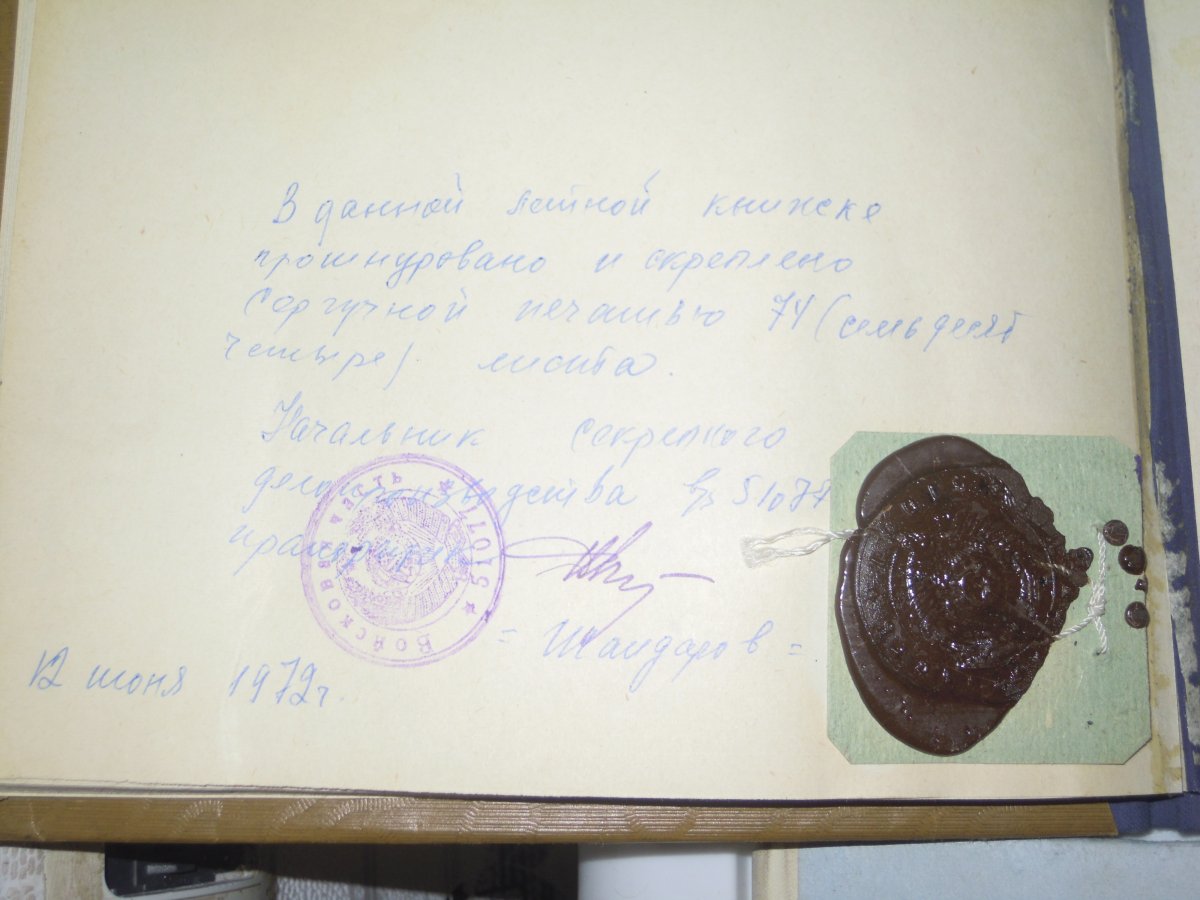 В данной летной книжке
прошнуровано и скреплено
сургучной печатью 74 (семьдесят
четыре) листа.
Начальник секретного
делопроизводства в/ч 51077
прапорщик
= Шандаров =
12 июня 1972г.
ВОЙСКОВАЯ ЧАСТЬ * 51077 *